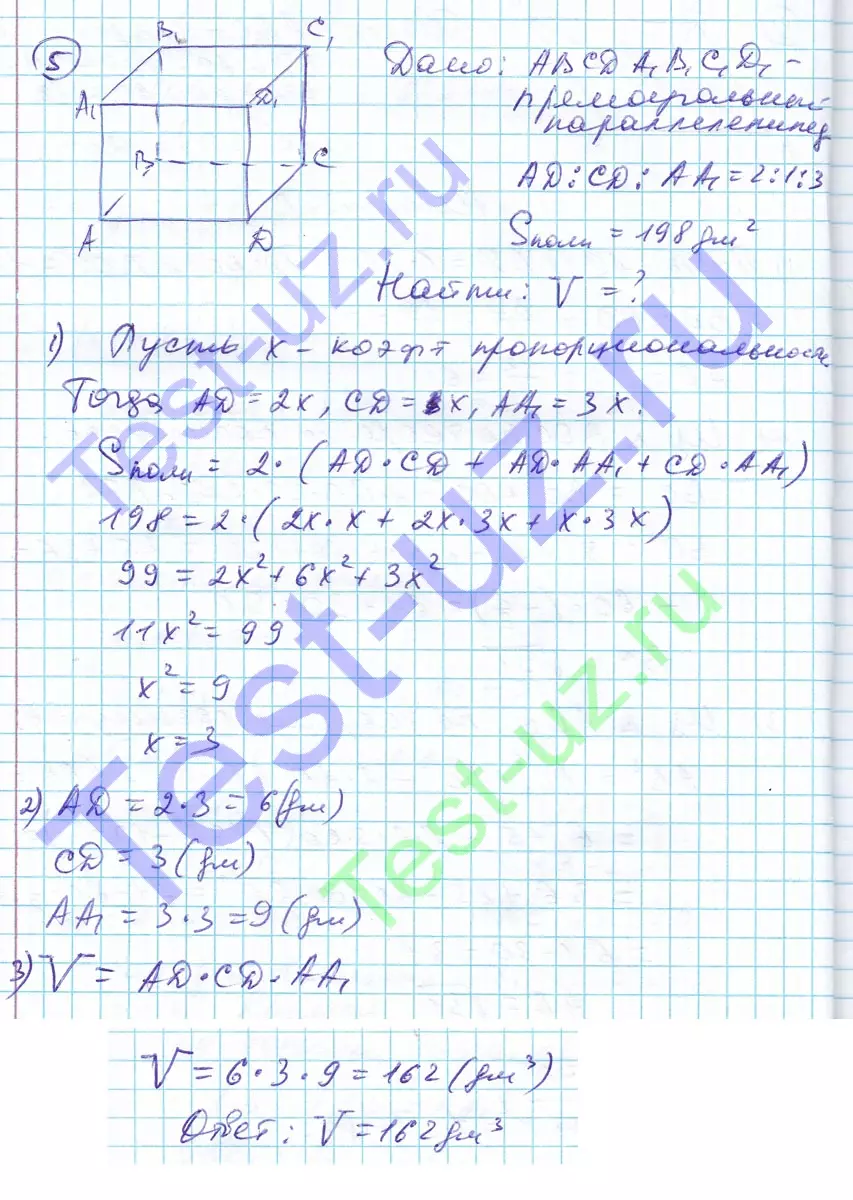 5
B₁ C₁
A₁ D₁
B C
A D
Дано: ABCDA₁B₁C₁D₁ –
прямоугольный
параллелепипед
AD:CD:AA₁ = 2:1:3
Sполн = 198 дм²
Найти: V = ?
1) Пусть x – коэфт пропорциональности.
Тогда AD = 2x, CD = x, AA₁ = 3x.
Sполн = 2·(AD·CD + AD·AA₁ + CD·AA₁)
198 = 2·(2x·x + 2x·3x + x·3x)
99 = 2x² + 6x² + 3x²
11x² = 99
x² = 9
x = 3
2) AD = 2·3 = 6 (дм)
CD = 3 (дм)
AA₁ = 3·3 = 9 (дм)
3) V = AD·CD·AA₁
V = 6·3·9 = 162 (дм³)
Ответ: V = 162 дм³
Test-uz.ru
Test-uz.ru
Test-uz.ru